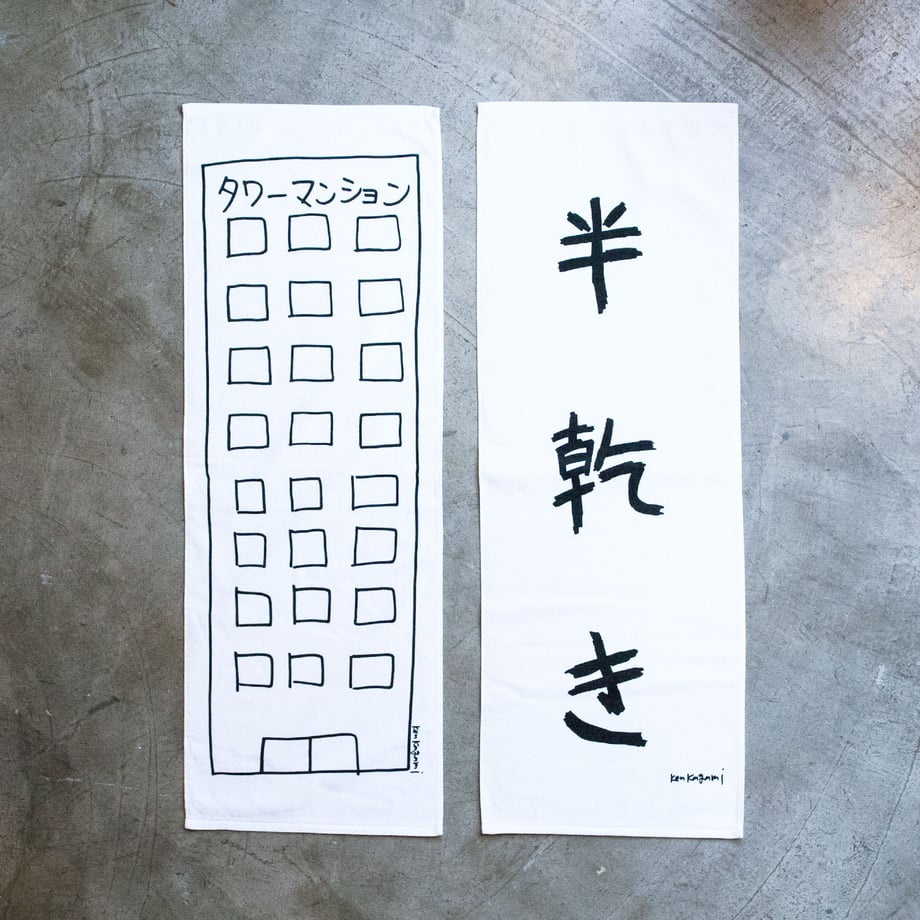 タワーマンション
Ken Kagami
半乾き
Ken Kagami